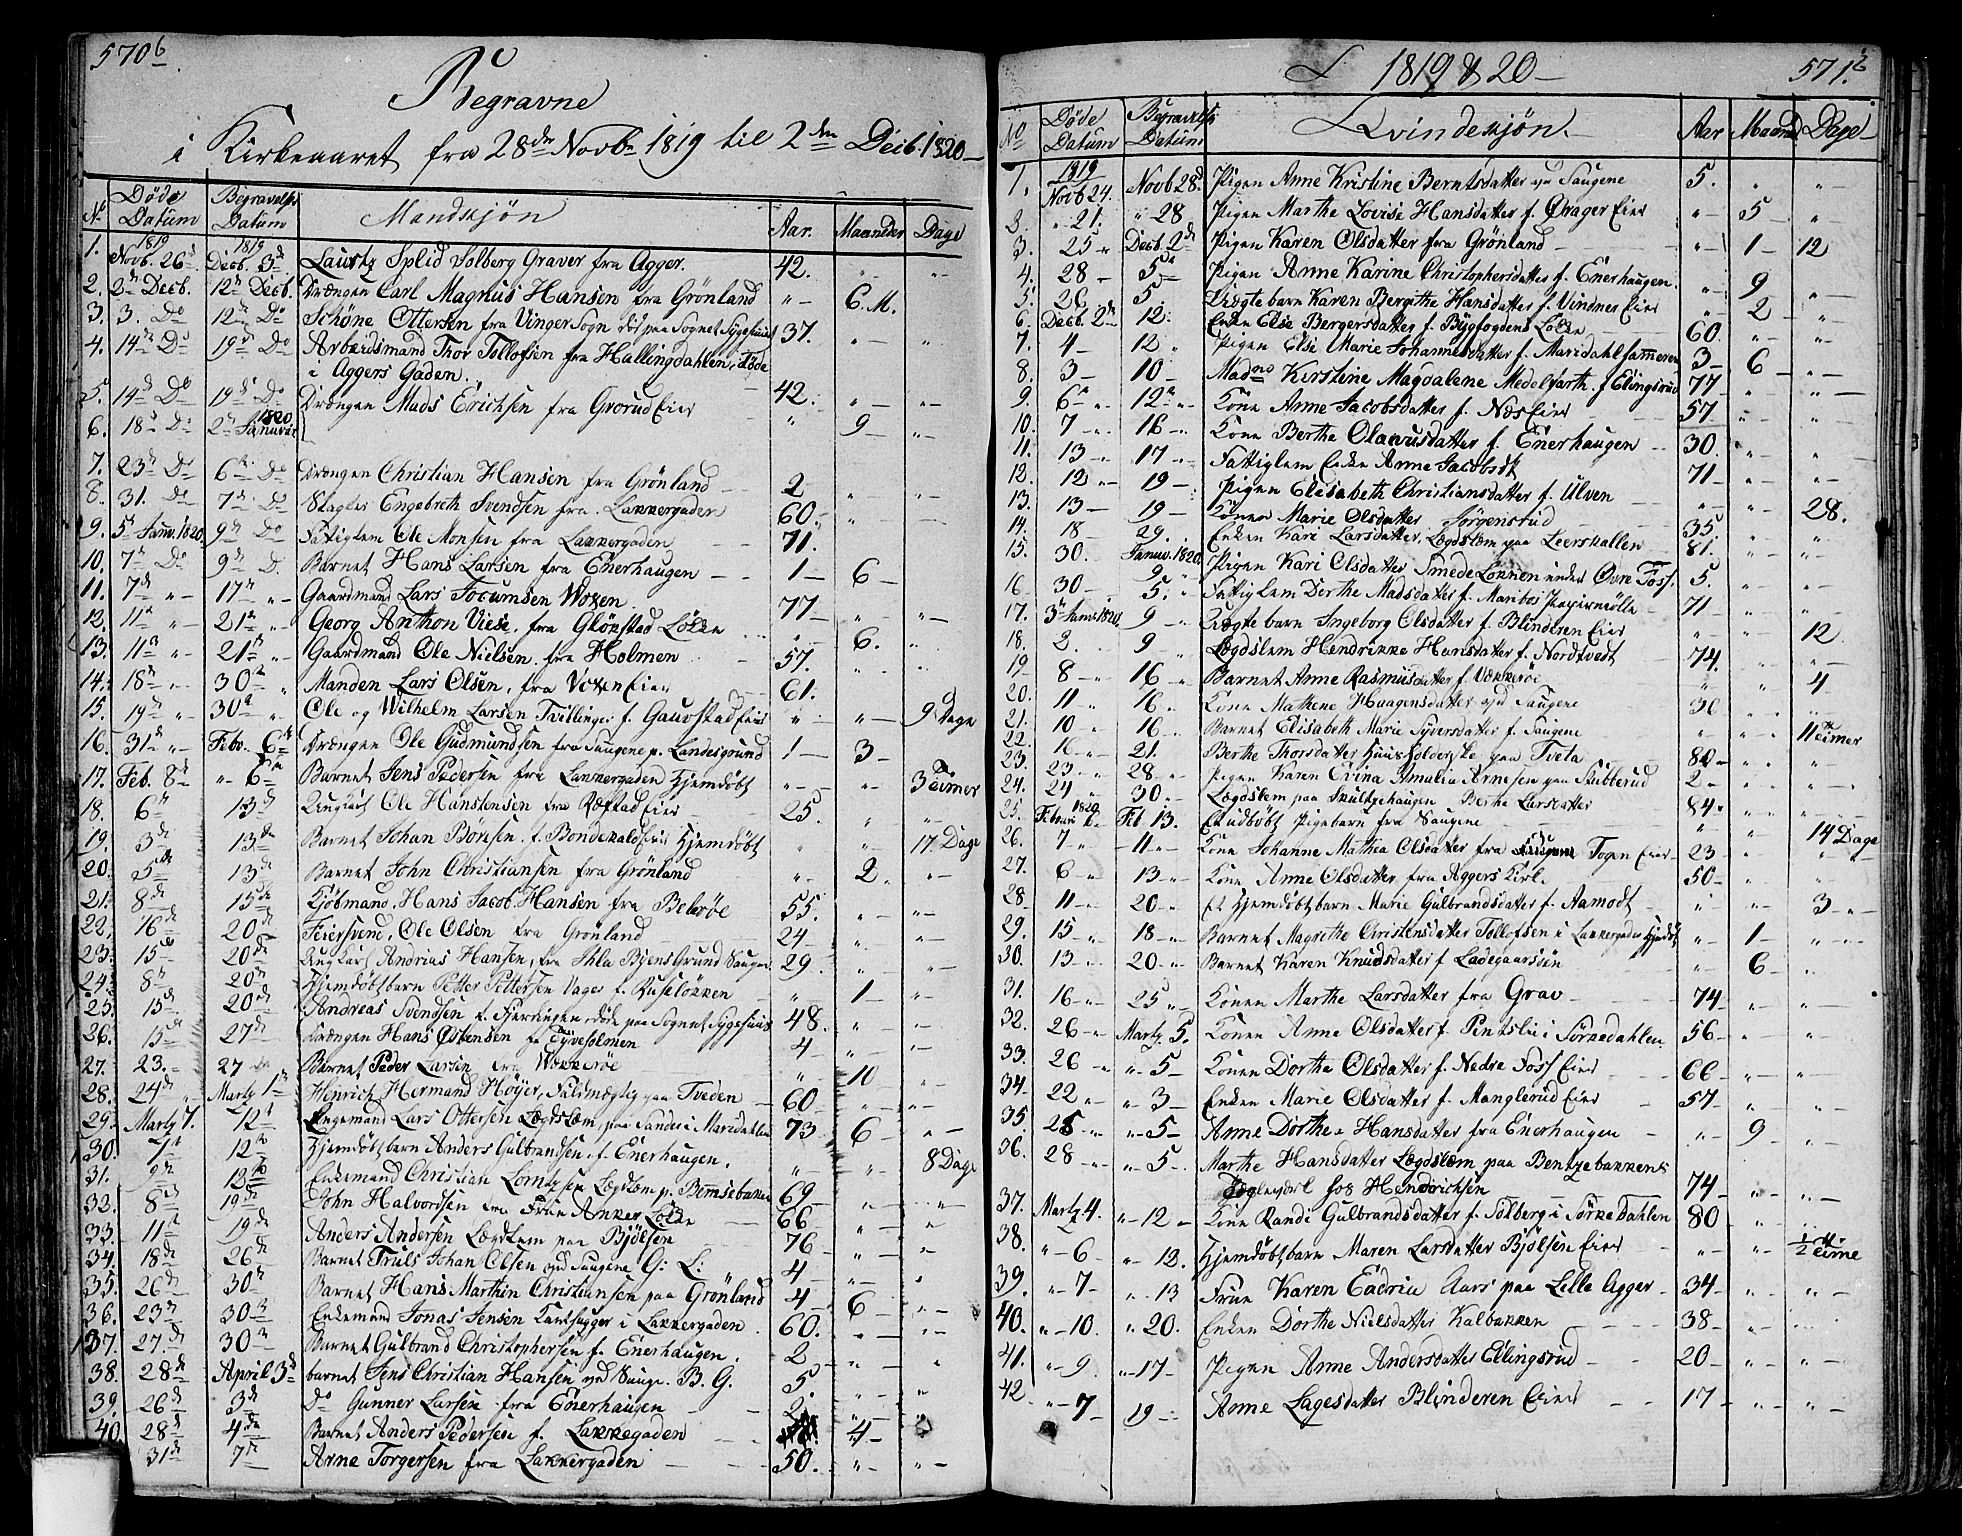 570b
Begravne
i Kirkeaaret fra 28de Novbr 1819 til 2den Decb. 1820
No Døde Datum Begravelses Datum Mandkjøn Aar. Maaneder Dage
1. 1819 Novb. 26de 1819 Decb. 3de Lauritz Splid Solberg Graver fra Agger. 42. " "
2. 2den Decb. 12te Decb. Drængen Carl Magnus Hansen fra Grönland " 6. M.
3. 3. Do 12te Do Schöne Ottersen fra Vinger Sogn død paa Sognets Sygehuus 37. " "
4. 14de Do 19de Do Arbeidsmand Thor Tollofsen fra Hallingdahlen, Døde
i Aggers Gaden. 42. " "
5. 14de Do 19de Do Drængen Mads Erichsen fra Grorud Eier " 9 "
6. 18de Do 2den Januar 1820
7. 23de Do 6te Do Drængen Christian Hansen fra Grönland 2 " "
8. 31. Do 7de Do Slagter Engebreth Svendsen fra Lakkergaden 60. " "
9. 5te Janv. 1820. 9de Do Fattiglem Ole Monsen fra Lakkergaden 71. " "
10. 7de Do 9de D. Barnet Hans Larsen fra Enerhaugen 1 6
11. 7de " 17de " Gaardmand Lars Tocumsen Woxen 77 " "
12. 11te " 21de " Georg Anthon Viese, fra Glönstad Løkke " 6. "
13. 11te " 21de " Gaardmand Ole Nielsen fra Holmen 57. " "
14. 18de " 30te " Manden Lars Olsen, fra Voxen Eier 61. " "
15. 19de " 30te " Ole og Wilhelm Larsen Tvillinger f. Gauestad Eier " " 9 Dage
16. 31de " Febr. 6te Drængen Ole Gudmundsen fra Saugene p. Landesgrund 1 3
17. Feb. 8de " 6te Barnet Jens Pedersen fra Lakkergaden Hjemdøbt " " 3 Timer
18. 6te 13de Ungkarl Ole Hanstensen fra Refstad Eier 25. " "
19. 3de 13de Barnet Johan Børresen, f. Bondekald Eier Hjemdöbt " " 17 Dage
20. 5te 13de Barnet John Christiansen fra Grönland " 2. "
21. 8de 15de Kjöbmand, Hans Jacob Hansen fra Beleröe 55. " "
22. 16de 20de Feiersvend, Ole Olsen fra Grönland 24 " "
23. 15de 20de Ungkarl Andrias Hansen, fra Ihla Byens Grund Sauger 29. " "
24. 8de 20de Hjemdöbt barn Petter Pettersen Vages f. Ruseløkken " 1 "
25. 15de 20de Andreas Svendsen f. Fjerdingen, døde paa Sognets Sygehuus 48. " "
26. 15de 27de Drængen Hans Østensen fr Tyveholmen 4 " "
27. 23. 27 Barnet Peder Larsen fra Wækkeröe " 10 "
28. 24de Martz 1te Henrich Hermand Höyer, Fuldmægtig paa Tveden 60 " "
29. Martz 7. 12te Engemand Lars Ottersen Lægdslem, paa Sander i Maridahlen 73 6 "
30. 7de 12te Hjemdöbt barn Anders Gulbrandsen, f. Enerhaugen. " " 8 Dage
31. 9de 12te Enkemand Christian Lorntzsen Lægdlem p. Bemsebakken 69 " "
32. 8de 19de John Halvordsen fra Frue Anker Løkke 66 " "
33. 11te 19de Anders Andersen Lægdslem paa Bjölsen 76 " "
34. 18de 26de Barnet Truls Johan Olsen ved Saugene G: L: 4 " "
35. 26de 30te Barnet Hans Marthin Christiansen paa Grönland 4 6 "
36. 23de 30te Enkemand Jonas Jensen Tanthugger i Lakkergaden 60. " "
37. 27de 30te Barnet Gulbrand Christophersen f. Enerhaugen. 2 " "
38. 28de April 3de barnet Jens Christian Hansen ved Sauge. B. G. 5 " "
39. 26de 3de Do Gunner Larsen fra Enerhaugen 2. " "
40 28de 4de Barnet Anders Pedersen f. Lakkegaden 4
31de 7de Arne Torgersen fra Lakkergaden 50. " "
1819 & 20 571.b
No Døde Datum Begravelses Datum Qvindekjön. Aar Maaned Dage
1. 1819 Novb 24. Novb 28de Pigen Anne Kristine Berntsdatter ved Saugene 5. " "
2. " 21. " 28 Pigen Marthe Lovise Hansdatter f. Ørager Eier " 5 "
3. 25 " Decb. 2de Pigen Karen Olsdatter fra Grönland " 1 12
4. 28 5te Pigen Anne Karine Christophersdatter f. Enerhaugen. " 9 "
5. 26 5 Uægte barn Karen Bergithe Hansdatter f. Vindnes Eier " 2 "
6. Decb. 2de 12. Enken Else Bergersdatter f. Bygfogdens Løkke 60. " "
7. 4 12 Pigen Else Marie Johannesdatter f. Maridahlshammeren 3 6 "
8. 3 10 Madme Kirstine Magdalene Medelfarth. f Ellingsrud 77 " "
9. 6te " 12te " Kone Anne Jacobsdatter f. Næs Eier 57 " "
10. 7 " 16 " Kone Berthe Olavusdatter f. Enerhaugen 30. " "
11. 13 " 17 " Fattiglem Enke Anne Jacobsdt 71 " "
12. 12 " 19 Pigen Elisabeth Christiansdatter f. Ulven " " 28.
13. 13 19 Konen Marie Olsdatter Sørgenstud 35 " "
14. 18 29. Enken Kari Larsdatter. Lægdslem paa Leerskallen 81. " "
15. 30. Janv. 1820. 9 Pigen Kari Olsdatter Smede Løkken under Øvre Foss. 5. " "
16 30 5. Fattiglem Dorthe Madsdatter f. Maribos Papiirmølle 71 " "
17. 3de Janv. 1820. 9 Uægte barn Ingeborg Olsdatter f. Blinderen Eier " " 12
18. 2. 9 Lægdslem Hendrikke Hansdatter f. Nordtvedt 74. " "
19 8 16 Barnet Anne Rasmusdatter f. Vækkeröe " " 4
20. 11 16 Kone Mathene Haagensdatter ved Saugene 36 " "
21. 10 16 Barnet Elisabeth Marie Syversdatter f. Saugene " " 11 Timer
22. 16 21. Berthe Thorsdatter Huusholderske paa Tveta 80 " "
23. 23 28 Pigen Karen Evina Amalia Arnesen paa Stubberud 2 " "
24. 24 30. Lægdslem paa Skultzehaugen Berthe Larsdatter 84. " "
25. 1820. Feb. 13. Et udøbt Pigebarn fra Saugene " " 14 Dage
26. 7 11 Kone Johanne Mathia Olsdatter fra Togen Eier 23 " "
27. 6 13 Kone Anne Olsdatter fra Aggers Kirke 50 " "
28. 11 20 Et Hjemdöbt barn Marie Gulbrandsdatter f. Aamodt " " 3
29. 15 18 Barnet Magrethe Christensdatter Tollofsen i Lakkergaden Hjemdøbt " 1 "
30. 13 20 Barnet Karen Knudsdatter f Ladegaarsöen " 6 "
31. 16 25 Konen Marthe Larsdatter fra Grav 74 " "
32. 26 Martz. 5. Konen Anne Olsdatter f. Pentslii i Sörkedahlen 56 " "
33. 26 " 5 Konen Dorthe Olsdatter f. Nedre Foss Eier 66 " "
34. 22 " 3 Enken Marie Olsdatter f. Manglerud Eier 57 " "
35. 28 " 5 Anne Dorthea Hansdatter fra Enerhaugen " 9 "
36. 28 " 5 Marthe Hansdatter Lægdslem paa Bentzebakkens
Teglværk hos Hendrichsen 74 " "
37. Martz 4. " 12 Kone Randi Gulbrandsdatter f. Solberg i Sörke Dahlen 80 " "
38. " 6 " 12. Hjemdöbt barn Maren Larsdatter Bjölsen Eier " " 1/2 Time
39. " 7 " 13 Frue Karen Edriu Aars paa Lille Agger 34 " "
40. " 10. " 20. Enken Dorthe Nielsdatter Kalbakken 38 " "
41. " 9. " 17 Pigen Anne Andersdatter Ellingsrud 20 " "
42. " 7 19 Anne Lagesdatter Blinderen Eier 17 " "